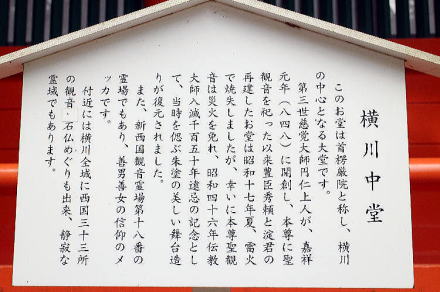 横川中堂
このお堂は首楞厳院と称し、横川
の中心となる大堂です。
第三世慈覚大師円仁上人が、嘉祥
元年(八四八)に開創し、本尊に聖
観音を祀った以来豊臣秀頼と淀君の
再建したお堂は昭和十七年夏、雷火
で焼失しましたが、幸いに本尊聖観
音は災火を免れ、昭和四十六年伝教
大師入滅千百五十年遠忌の記念とし
て、当時を偲ぶ朱塗の美しい舞台造
りが復元されました。
また、新西国観音霊場第十八番の
霊場でもあり、善男善女の信仰のメ
ッカです。
付近には横川全域に西国三十三所
の観音・石仏めぐりも出来、静寂な
霊域でもあります。